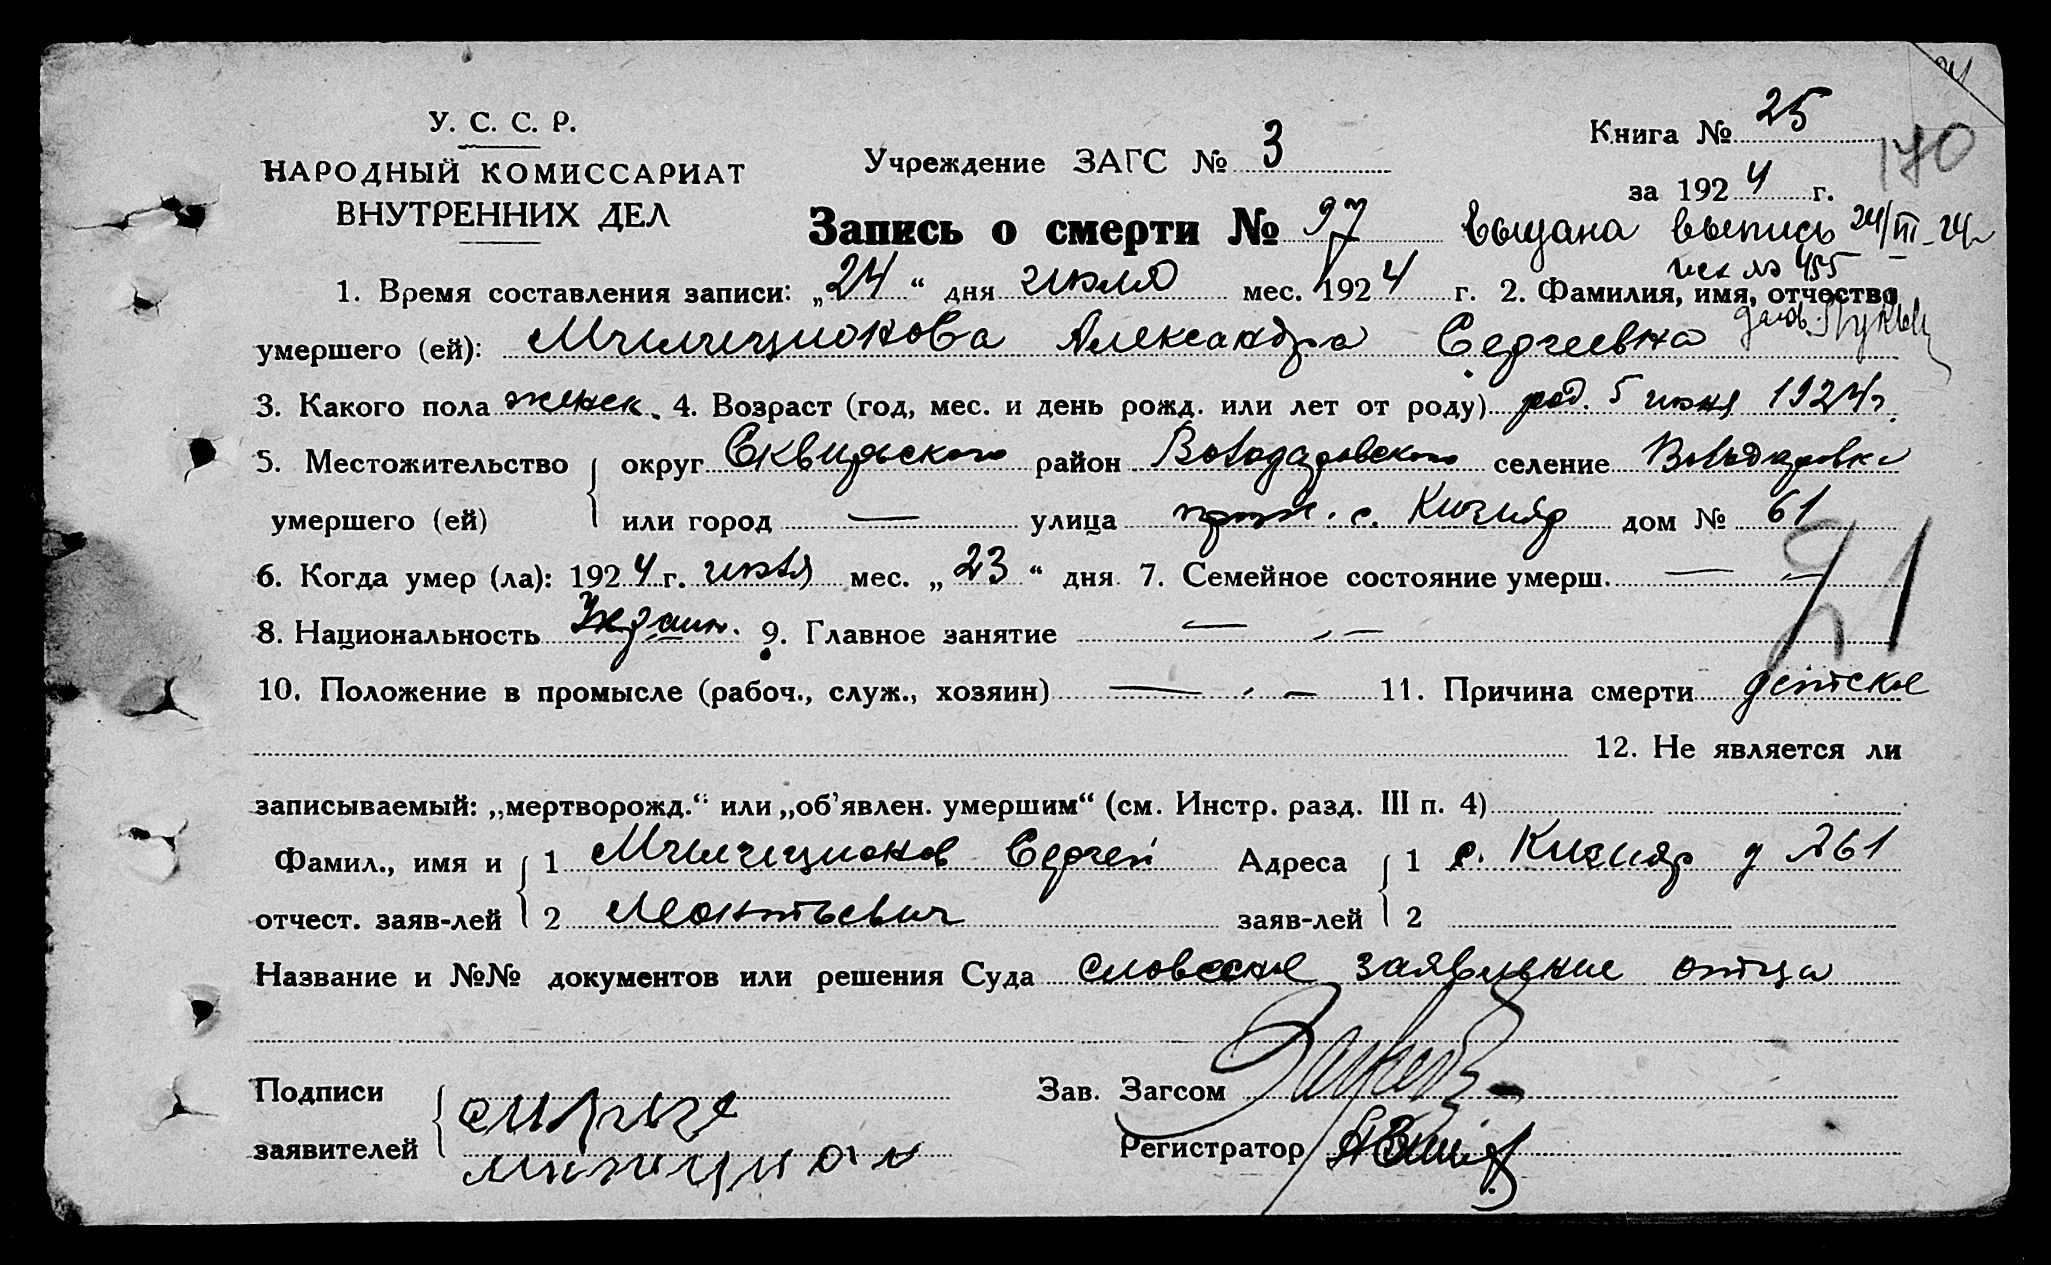 У. С. С. Р.
НАРОДНЫЙ КОМИССАРИАТ
ВНУТРЕННИХ ДЕЛ
Учреждение ЗАГС № 3
Книга № 25
170
за 1924 г.
Запись о смерти № 97 выдана выпись 24/VII-24г
исх № 455
1. Время составления записи: „24“ дня июля мес. 1924 г. 2. Фамилия, имя, отчество
умершего (ей): Милиционова Александра Сергеевна
3. Какого пола женск. 4. Возраст (год, мес. и день рожд. или лет от роду) род. 5 июня 1924г.
5. Местожительство округ Сквирского район Володарского селение Володарка
умершего (ей) или город — улица с. Кизияр дом № 61
6. Когда умер (ла): 1924 г. июля мес. „23“ дня 7. Семейное состояние умерш. — —
21
8. Национальность Украин. 9. Главное занятие — „ —
10. Положение в промысле (рабоч., служ., хозяин) — „ — 11. Причина смерти детская
12. Не является ли
записываемый: „мертворожд.“ или „об’явлен. умершим“ (см. Инстр. разд. III п. 4)
Фамил., имя и 1 Милиционов Сергей Адреса 1 с. Кизияр д №61
отчест. заяв-лей 2 Леонтьевич заяв-лей 2
Название и №№ документов или решения Суда словесное заявление отца
Подписи Зав. Загсом
заявителей милицион Регистратор